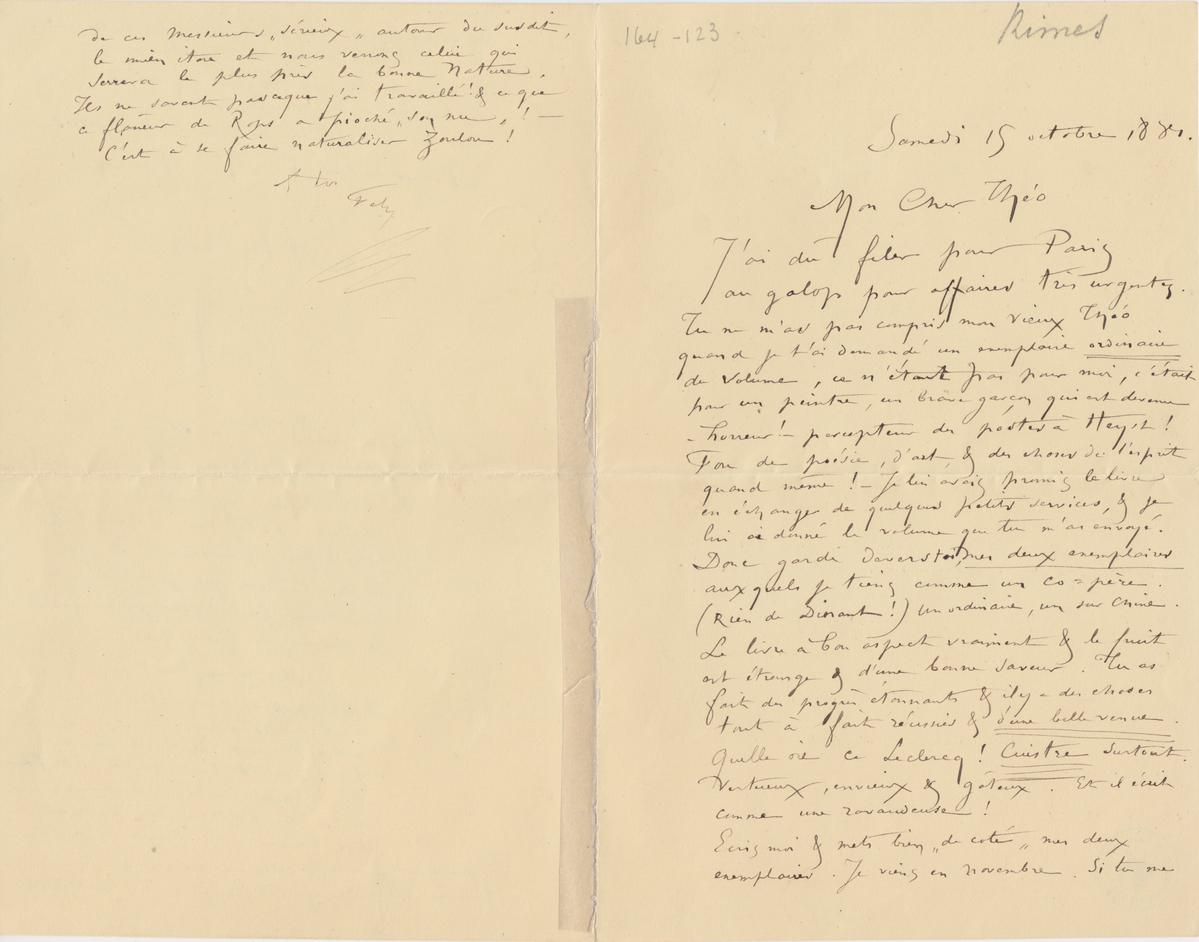 164-123
Rimes
Samedi 15 octobre 1881.
Mon Cher Théo
J'ai dû filer pour Paris
au galop pour affaires très urgentes.
Tu ne m'as pas compris mon vieux Théo
quand je t'ai demandé un exemplaire ordinaire
du volume, ce n'était pas pour moi, c'était
pour un peintre, un brave garçon qui est devenu
- horreur! - percepteur des postes à Heyst!
Fou de poésie, d'art, & des choses de l'esprit
quand même! - Je lui avais promis le livre
en échange de quelques petits services, & je
lui ai donné le volume que tu m'as envoyé.
Donc garde devers toi, mes deux exemplaires
auxquels je tiens comme un co=père.
(Rien de Dinant!) un ordinaire, un sur Chine.
Le livre à bon aspect vraiment & le fruit
est étrange & d'une bonne saveur. Tu as
fait des progrès étonnants & il y a des choses
tout à fait réussies & d'une belle venue.
Quelle oie ce Leclercq! Cuistre surtout.
Vertueux, envieux & gâteux. Et il écrit
comme une ravaudeuse!
Ecris moi & mets bien „de coté„ mes deux
exemplaires. Je viens en novembre. Si tu me
de ces messieurs „sérieux„ autour du susdit,
le mien itou et nous verrons celui qui
serrera le plus près la bonne Nature.
Ils ne savent pas ce que j'ai travaillé! & ce que
ce flâneur de Rops a pioché „son nu„! —
C'est à se faire naturaliser Zoulou!
A toi
Fely